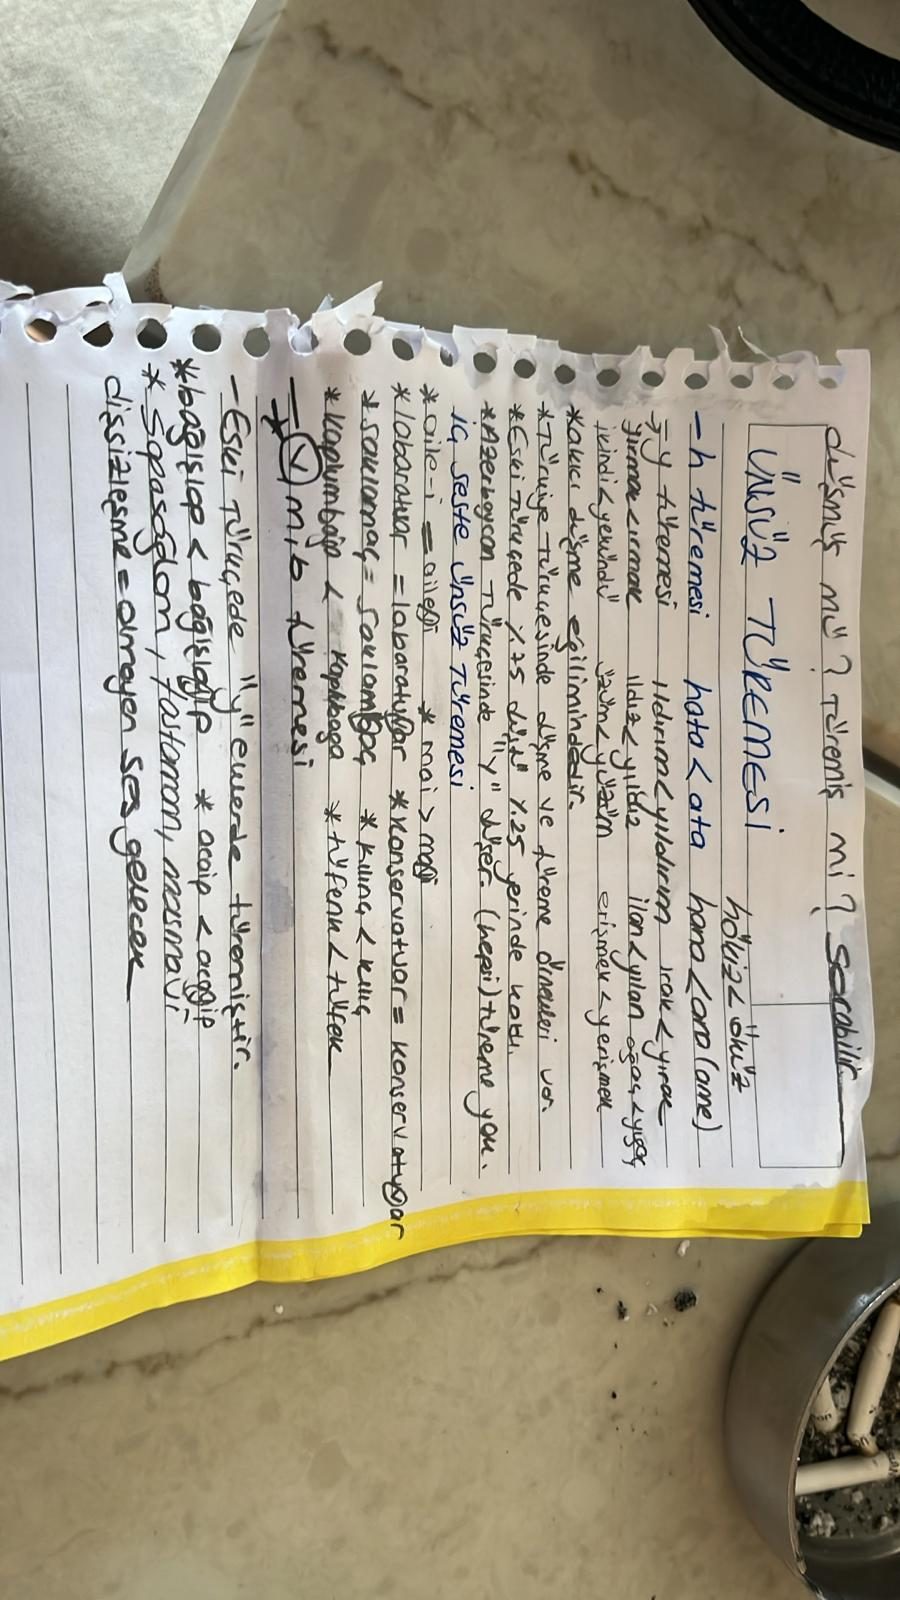 düşmüş mü? Türemiş mi? sorabilir
ÜNSÜZ TÜREMESİ
höküz < öküz
- h türemesi hata < ata hana < ana (ame)
→ y türemesi ıldırım < yıldırım ırak < yırak
yırmak < ırmak ıldız < yıldız ilan < yılan ağaç < yığaç
ikindi < yekindü üzüm < yüzüm erişmek < yerişmek
* Kalıcı düşme eğilimindedir.
* Türkiye Türkçesinde düşme ve türeme örnekleri var.
* Eski Türkçede %75 düştü %25 yerinde kaldı.
* Azerbaycan Türkçesinde "y" düşer. (hepsi) türeme yok.
iç seste ünsüz Türemesi
* aile-i = aileği * mai > maği
* labaratuar = labaratuvar * Konservatuar = konservatuvar
* saklamaç = saklambaç * Kılınç < kılıç
* Kaplumbağa < kaplıbağa * tüfenk < tüfek
- v, m, b türemesi
- Eski Türkçede "y" evvelde türemiştir.
* bağışlap < bağışlağıp * açaip < açağıp
* Sapasağlam, tastamam, masmavi
dişsizleşme = olmayan ses gelecek